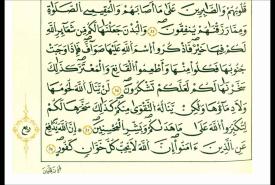 قُلُوبُهُمْ وَالصَّابِرِينَ عَلَىٰ مَا أَصَابَهُمْ وَالْمُقِيمِي الصَّلَاةِ
وَمِمَّا رَزَقْنَاهُمْ يُنفِقُونَ ۝ وَالْبُدْنَ جَعَلْنَاهَا لَكُم مِّن شَعَائِرِ اللَّهِ
لَكُمْ فِيهَا خَيْرٌ فَاذْكُرُوا اسْمَ اللَّهِ عَلَيْهَا صَوَافَّ فَإِذَا وَجَبَتْ
جُنُوبُهَا فَكُلُوا مِنْهَا وَأَطْعِمُوا الْقَانِعَ وَالْمُعْتَرَّ كَذَٰلِكَ
سَخَّرْنَاهَا لَكُمْ لَعَلَّكُمْ تَشْكُرُونَ ۝ لَن يَنَالَ اللَّهَ لُحُومُهَا
وَلَا دِمَاؤُهَا وَلَٰكِن يَنَالُهُ التَّقْوَىٰ مِنكُمْ كَذَٰلِكَ سَخَّرَهَا لَكُمْ
لِتُكَبِّرُوا اللَّهَ عَلَىٰ مَا هَدَاكُمْ وَبَشِّرِ الْمُحْسِنِينَ ۝ إِنَّ اللَّهَ يُدَافِعُ
عَنِ الَّذِينَ آمَنُوا إِنَّ اللَّهَ لَا يُحِبُّ كُلَّ خَوَّانٍ كَفُورٍ ۝